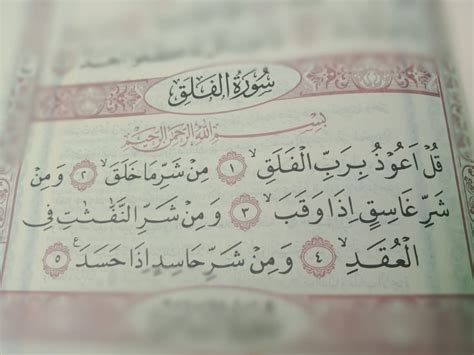 سُورَةُ الْفَلَقِ
بِسْمِ اللّٰهِ الرَّحْمٰنِ الرَّحِيْمِ
قُلْ اَعُوْذُ بِرَبِّ الْفَلَقِۙ ١ مِنْ شَرِّ مَا خَلَقَۙ ٢ وَمِنْ
شَرِّ غَاسِقٍ اِذَا وَقَبَۙ ٣ وَمِنْ شَرِّ النَّفّٰثٰتِ فِى
الْعُقَدِۙ ٤ وَمِنْ شَرِّ حَاسِدٍ اِذَا حَسَدَ ࣖ ٥